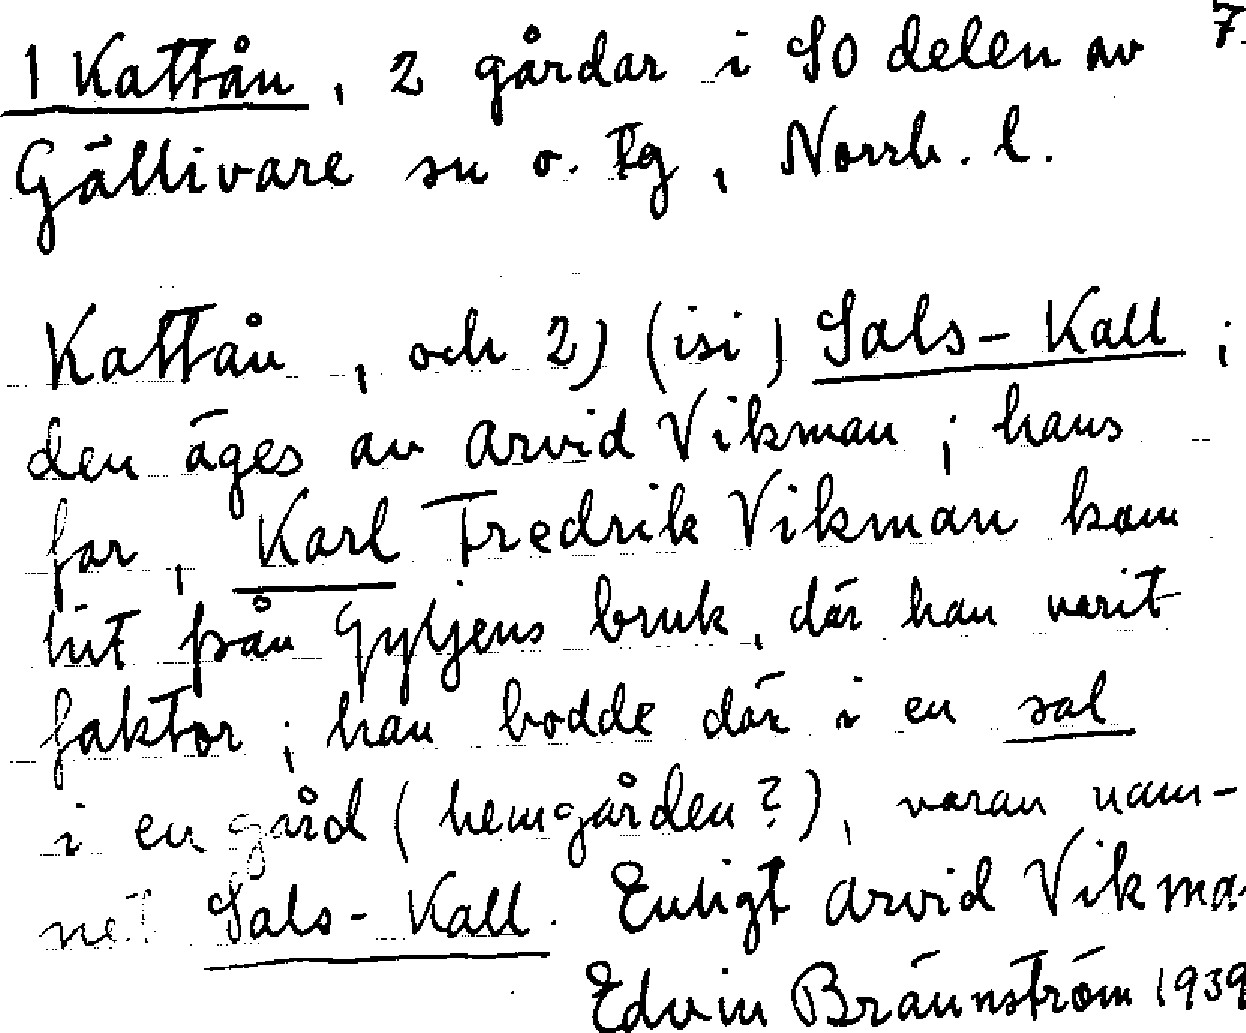 7.
1 Kattån, 2 gårdar i SO delen av
Gällivare sn o. tg, Norrb. l.
Kattån, och 2) (isi) Sals-Kall;
den äges av Arvid Vikman; hans
far, Karl Fredrik Vikman kom
hit från Gyljens bruk, där han varit
faktor; han bodde där i en sal
i en gård (hemgården?), varan nam-
net Sals-Kall. Enligt Arvid Vikma
Edvin Brännström 1939